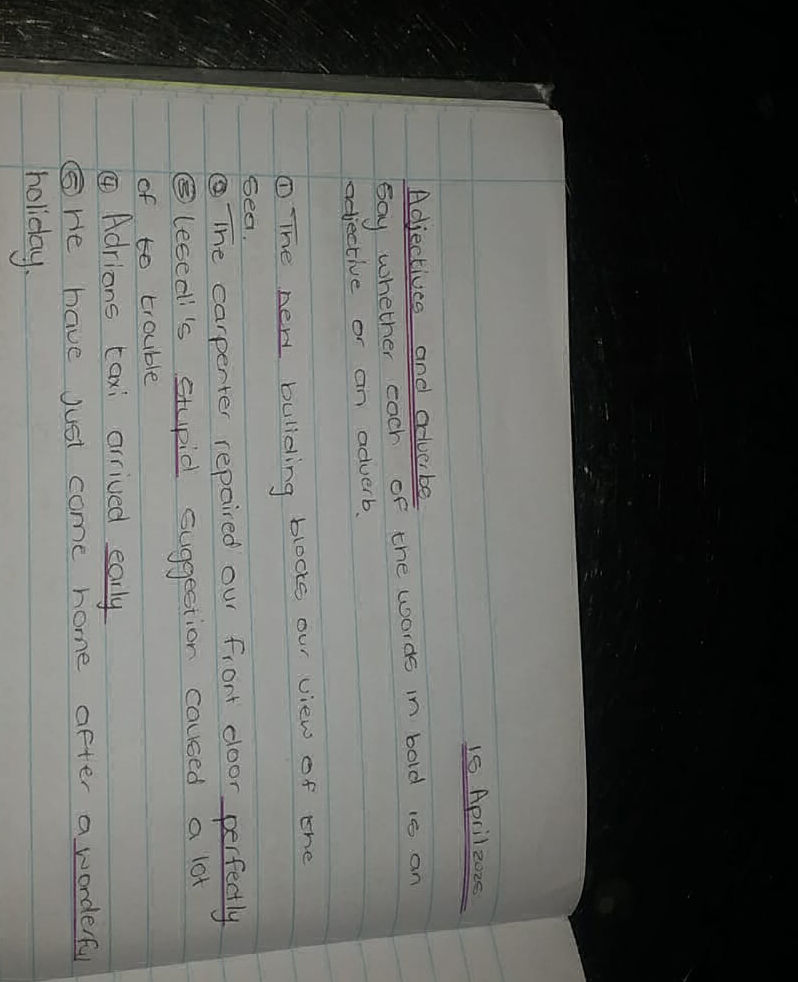 15 April 2025
Adjectives and adverbs
Say whether each of the words in bold is an
adjective or an adverb.
① The new buliding blocks our view of the
sea.
② The carpenter repaired our front door perfectly
③ Lesedi's stupid suggestion caused a lot
of to trouble
④ Adrians taxi arrived early
⑤ He have just come home after a wonderful
holiday.